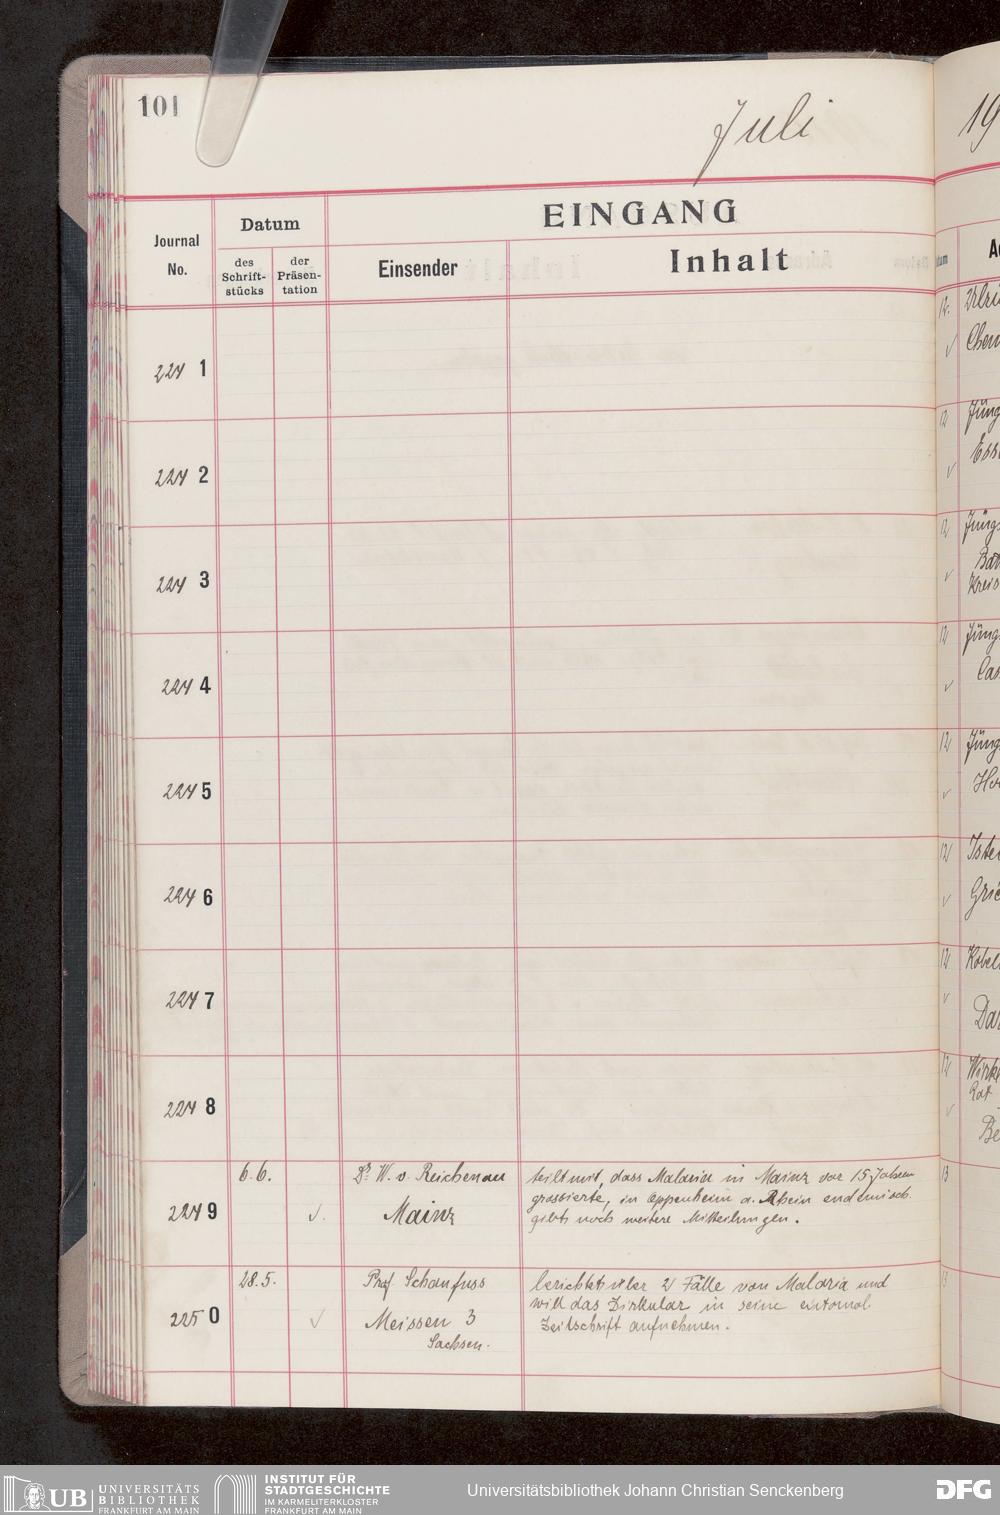 101
Juli
19
Journal
No.
Datum
des
Schrift-
stücks
der
Präsen-
tation
EINGANG
Einsender
Inhalt
224 1
224 2
224 3
224 4
224 5
224 6
224 7
224 8
224 9
6.6.
√.
Dr. W. v. Reichenau
Mainz
teilt mit, dass Malaria in Mainz vor 15 Jahren
grassierte, in Oppenheim a. Rhein endemisch.
gibt noch weitere Mitteilungen.
225 0
28.5.
√
Prof. Schaufuss
Meissen 3
Sachsen.
berichtet über 2 Fälle von Malaria und
will das Zirkular in seine entomol.
Zeitschrift aufnehmen.
12.
12
12
12
12
12
12
12
13
13
UB UNIVERSITÄTS
BIBLIOTHEK
FRANKFURT AM MAIN
INSTITUT FÜR
STADTGESCHICHTE
IM KARMELITERKLOSTER
FRANKFURT AM MAIN
Universitätsbibliothek Johann Christian Senckenberg
DFG